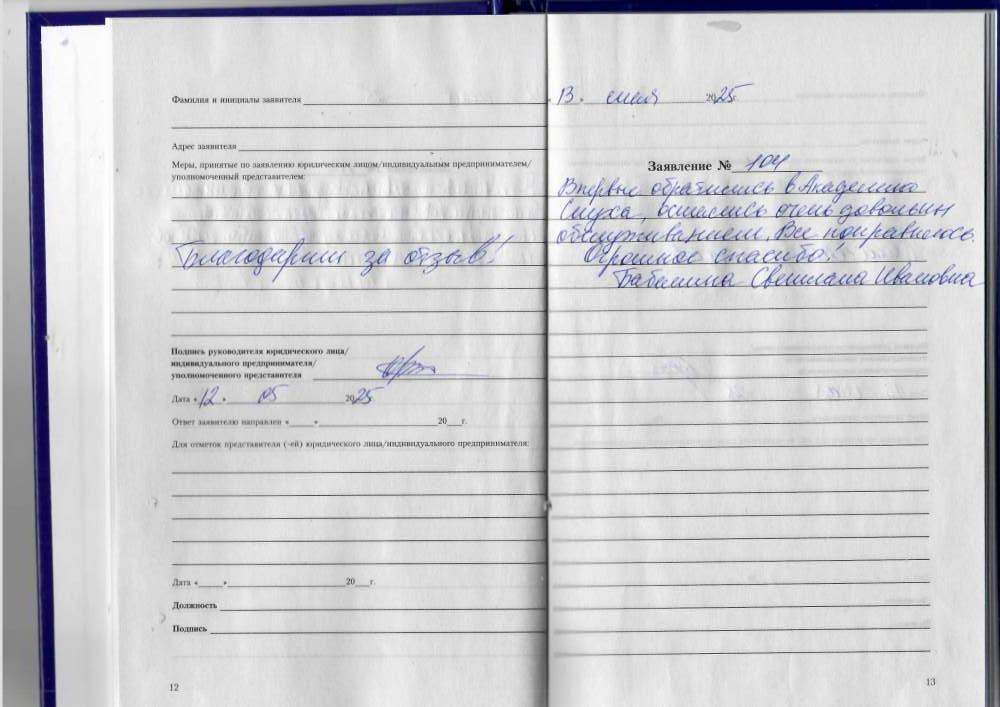 Фамилия и инициалы заявителя
Адрес заявителя
Меры, принятые по заявлению юридическим лицом/индивидуальным предпринимателем/
уполномоченный представителем:
Благодарим за отзыв!
Подпись руководителя юридического лица/
индивидуального предпринимателя/
уполномоченного представителя
Дата «12» 05 2025г.
Ответ заявителю направлен «____»____20__г.
Для отметок представителя (-ей) юридического лица/индивидуального предпринимателя:
Дата «____»____20__г.
Должность
Подпись
12
«13» мая 2025г.
Заявление № 104
Впервые обратились в Академию
Слуха, остались очень довольны
обслуживанием. Все понравилось.
Огромное спасибо!
Светлана Ивановна
13